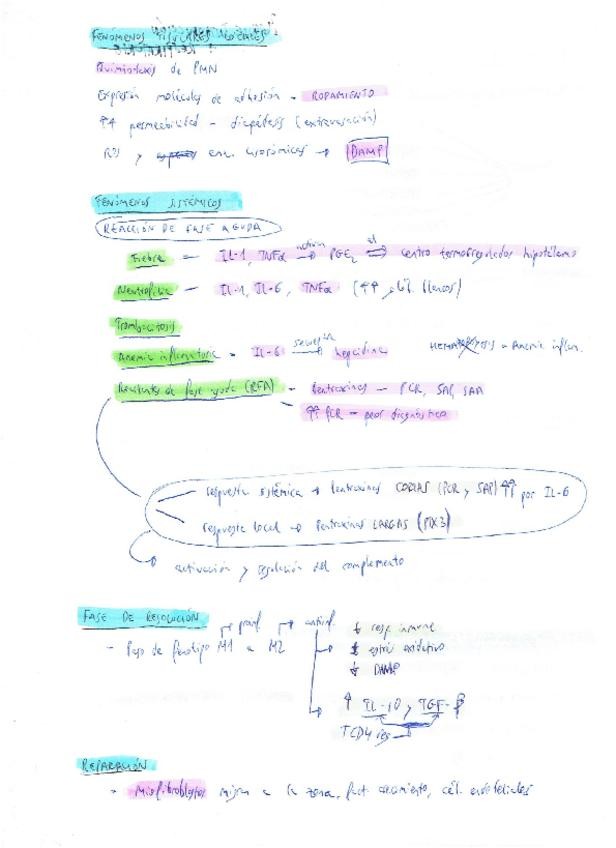 FENÓMENOS TISULARES LOCALES
Quimiotaxis de PMN
Expresión moléculas de adhesión - ROPAMIENTO
↑↑ permeabilidad - diapédesis (extravasación)
ROS y enz. lisosómicas → DAMP
FENÓMENOS SISTÉMICOS
REACCIÓN DE FASE AGUDA
Fiebre = IL-1, TNFα → PGE2 ⇒ centro termorregulador hipotálamo
Neutrofilia - IL-1, IL-6, TNFα (↑↑ glób. blancos)
Trombocitosis
Anemia inflamatoria = IL-6 → hepcidina
Anemia inflam.
Reactantes de fase aguda (RFA) - Pentraxinas - PCR, SAP, SAA
- ↑↑ PCR = peor diagnóstico
respuesta sistémica → Pentraxinas CORTAS (PCR y SAP) ↑↑ por IL-6
respuesta local → Pentraxinas LARGAS (PTX3)
activación y regulación del complemento
FASE DE RESOLUCIÓN
proinf. antiinf.
- Paso de fenotipo M1 a M2
↓ resp. inmune
↓ estrés oxidativo
↓ DAMP
↑ IL-10 y TGF-β
TCD4 reg
REPARACIÓN
- Miofibroblastos migran a la zona, fact. crecimiento, cél. endoteliales